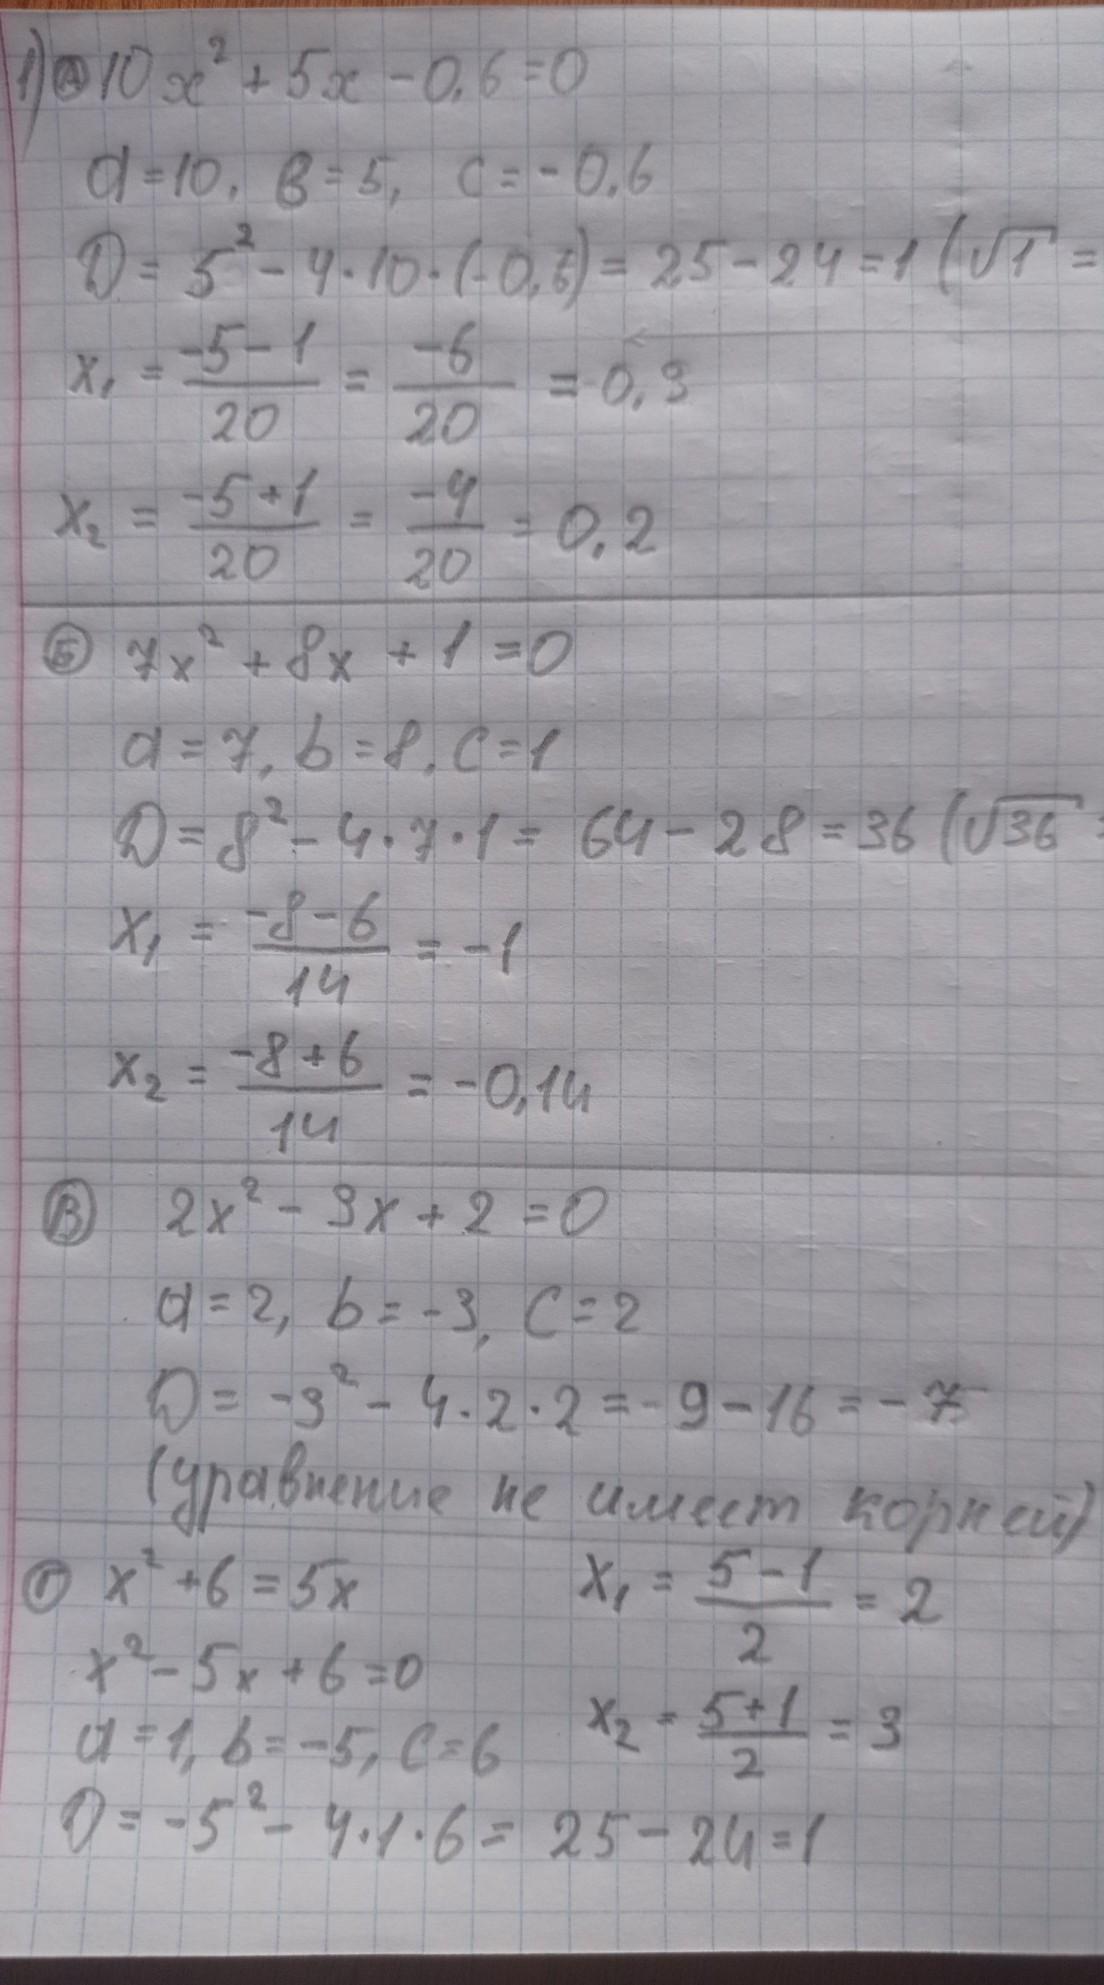 1) а 10x² + 5x - 0,6 = 0
a = 10, в = 5, c = -0,6
D = 5² - 4·10·(-0,6) = 25 - 24 = 1 (√1 =
x₁ = (-5-1)/20 = -6/20 = -0,3
x₂ = (-5+1)/20 = -4/20 = 0,2
б 7x² + 8x + 1 = 0
a = 7, b = 8, c = 1
D = 8² - 4·7·1 = 64 - 28 = 36 (√36 =
x₁ = (-8-6)/14 = -1
x₂ = (-8+6)/14 = -0,14
в 2x² - 3x + 2 = 0
a = 2, b = -3, c = 2
D = -3² - 4·2·2 = -9 - 16 = -7
(уравнение не имеет корней)
г x² + 6 = 5x
x² - 5x + 6 = 0
a = 1, b = -5, c = 6
D = -5² - 4·1·6 = 25 - 24 = 1
x₁ = (5-1)/2 = 2
x₂ = (5+1)/2 = 3